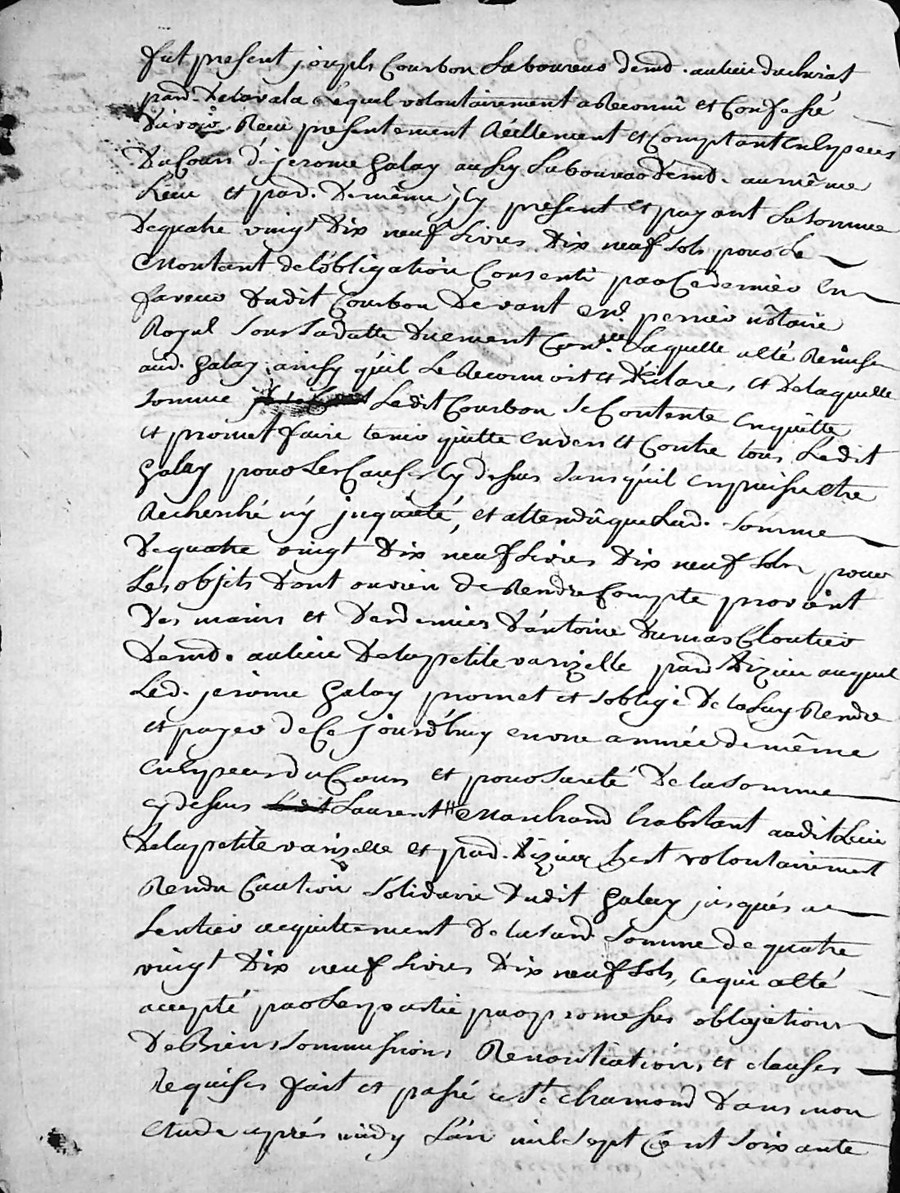 fut present joseph Courbon Laboureur demt. au lieu du chirat
parr. de Lavala Lequel volontairement a Reconnû et Confessé
d'avoir Receü presentement Réellement et Comptant en Especes
du Cours de jerome Galay aussy Laboureur demt. au même
Lieu et parr. de même icy present et payant La somme
de quatre vingt dix neuf Livres dix neuf sols pour le
montant de l'obligation Consenti par Ce dernier en
faveur dudit Courbon devant me. perrier nôtaire
Royal sous sa datte duement Con.ée Laquelle a été Remise
aud. Galay ainsy qu'il Le Reconnoit et déclare, et de laquelle
somme Ledit Courbon se Contente en quitte
et promet faire tenir quitte envers et Contre tous Ledit
Galay pour Les Causes Cy dessus sans qu'il en puisse être
Recherché n'y inquiété, et attendû que Lad. somme
de quatre vingt dix neuf Livres dix neuf sols pour
Les objets dont on vien de Rendre Compte provient
des mains et deniers d'antoine dumas Cloutier
demt. au lieu de la petite varizelle parr. d'izieu auquel
Led. jerome Galay promet et s'oblige de Luy Rendre
et payer de Ce jourd'huy en une année de même
en Especes du Cours et pour sureté de la somme
cy dessus Laurent marchand habitant audit Lieu
de la petite varizelle et parr. d'izieu s'est volontairement
Rendu Caution solidaire dudit Galay jusques a
L'entier acquittement de lasusd. somme de quatre
vingt dix neuf Livres dix neuf sols, ce qui a été
accepté par Les partie par promesses obligations
de Biens soummissions Renontiations et clauses
Requises fait et passé a st. chamond dans mon
etude aprés midy L'an mil sept Cent soixante